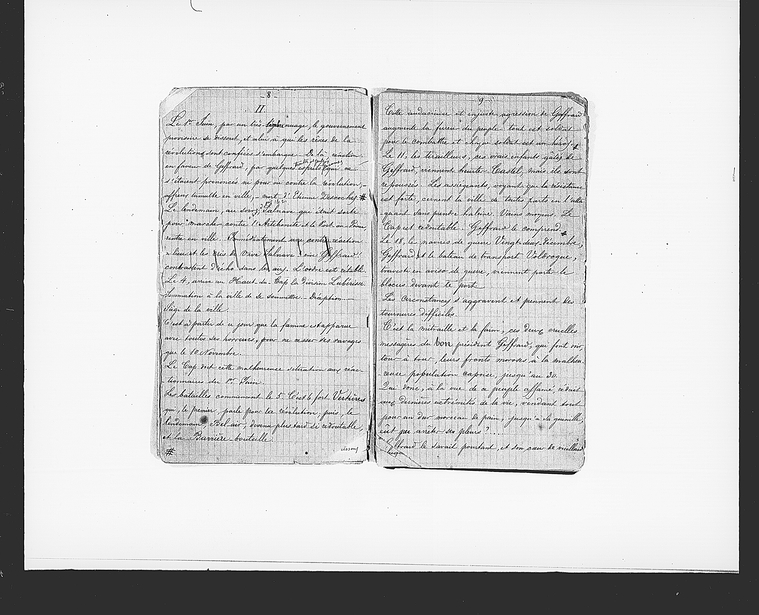 8
II.
Le 1er Juin, par un très léger nuage, le gouvernement
provisoire se dissout, et alors à qui les rênes de la
révolution sont confiées s'embarque. De la réaction
en faveur de Geffrard, par quelques esprits qui, ne
s'étaient prononcés ni pour ni contre la révolution,
affreux tumulte en ville, mort d'Etienne #
Le lendemain, au soir, Salnave qui était sorti
pour marcher contre l'Artibonite et le Port-au-Prince,
rentre en ville. Immédiatement une contre réaction
a lieu et les cris de Vive Salnave
d'écho dans les airs. L'ordre est rétabli.
Le 4, arrive au Haut du Cap la division Lubérisse
Sommation à la ville de se soumettre.
Siège de la ville.
C'est à partir de ce jour que la famine apparut
avec toutes ses horreurs, pour ne cesser ses ravages
que le 10 Novembre.
Le Cap doit cette malheureuse situation aux réac-
tionnaires du 1er Juin.
Les batailles commencent le 5. C'est le fort
qui, le premier, parle pour la révolution, puis, le
lendemain, Bel-air, devenu plus tard si redoutable,
et la Barrière bouteille.
#
9
Cette audacieuse et injuste agression de Geffrard
augmente la fureur du peuple. tout est soldat
pour le combattre et chaque soldat est un héros. #
Le 11, les tirailleurs, ces vrais enfants gâtés de
Geffrard, viennent heurter Castel, mais ils sont
repoussés. Les assiégeants, voyant que la résistance
est forte, cernent la ville de toutes parts en l'atta-
quant sans perdre haleine. Vains moyens. Le
Cap est redoutable. Geffrard le comprend. #
Le 18, les navires de guerre Vingt-deux Décembre,
Geffrard et le bateau de transport Voldrogue,
converti en aviso de guerre, viennent porter le
blocus devant le port.
Les circonstances s'aggravent et prennent des
tournures difficiles.
C'est la mitraille et la faim, ces deux cruelles
messagères du bon président Geffrard, qui font voir
tour à tour, leurs fronts moroses à la malheu-
reuse population capoise, jusqu'au 30.
Qui donc, à la vue de ce peuple affamé réduit
aux dernières extrémités de la vie, vendant tout
pour un dur morceau de pain, jusqu'à la guenille,
eût pu arrêter ses pleurs ? ...
Geffrard le savait pourtant, et son cœur de